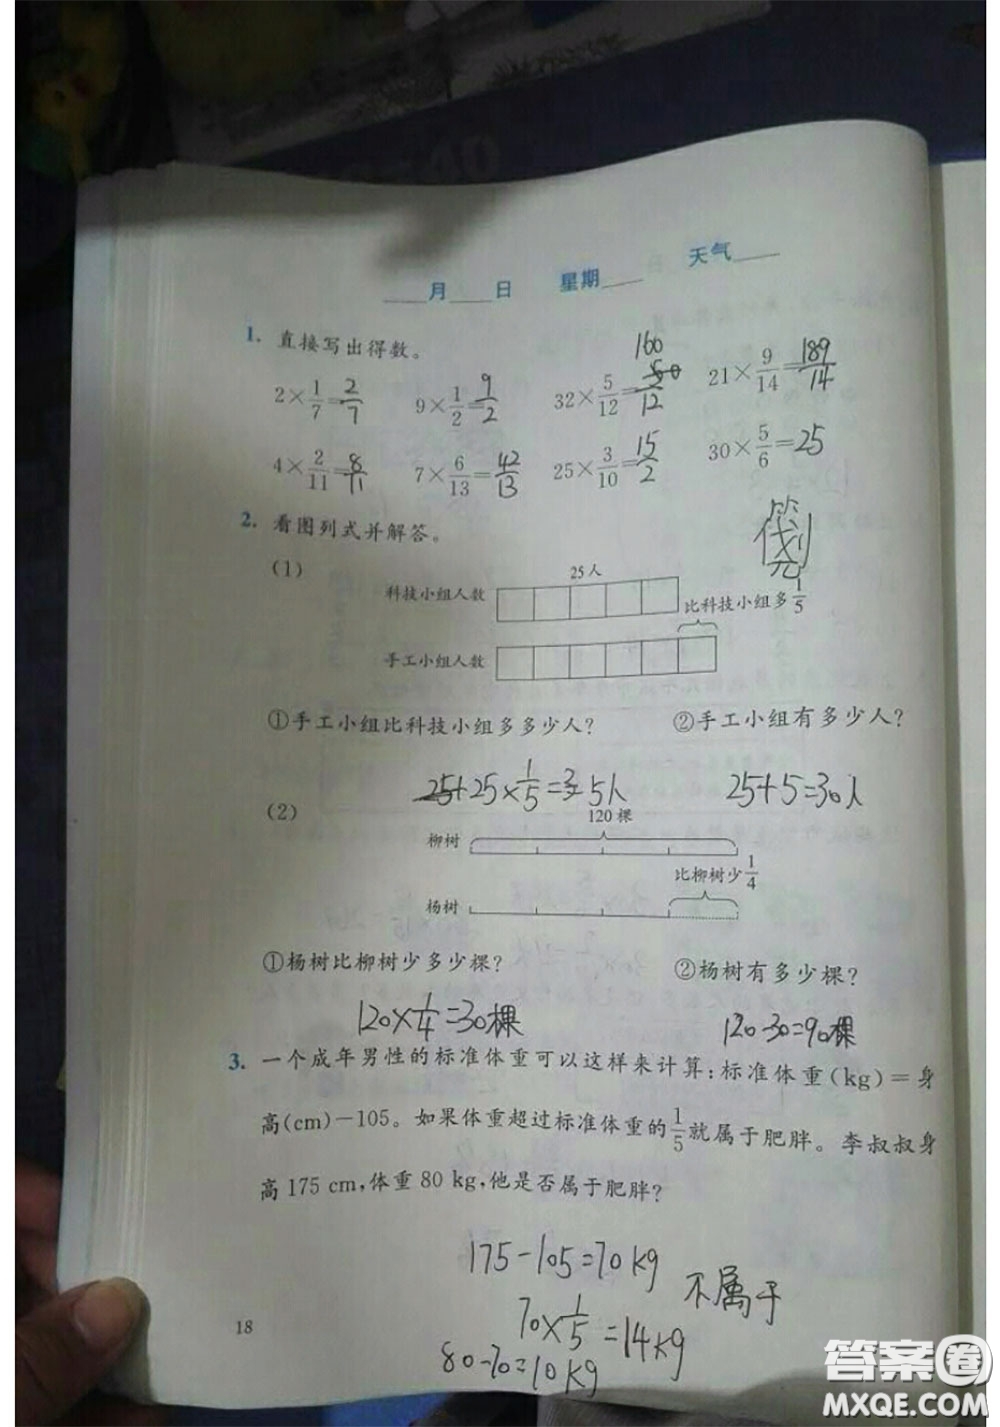 ____月____日 星期____ 天气____
1. 直接写出得数。
2×1/7=2/7 9×1/2=9/2 32×5/12=160/12 21×9/14=189/14
4×2/11=8/11 7×6/13=42/13 25×3/10=15/2 30×5/6=25
2. 看图列式并解答。
(1)
25人
科技小组人数
比科技小组多1/5
手工小组人数
①手工小组比科技小组多多少人? ②手工小组有多少人?
25×1/5=5人 25+5=30人
(2)
120棵
柳树
比柳树少1/4
杨树
①杨树比柳树少多少棵? ②杨树有多少棵?
120×1/4=30棵 120-30=90棵
3. 一个成年男性的标准体重可以这样来计算:标准体重(kg)=身
高(cm)-105。如果体重超过标准体重的1/5就属于肥胖。李叔叔身
高175 cm,体重80 kg,他是否属于肥胖?
175-105=70kg
不属于
70×1/5=14kg
80-70=10kg
18
答案圈
MXQE.COM